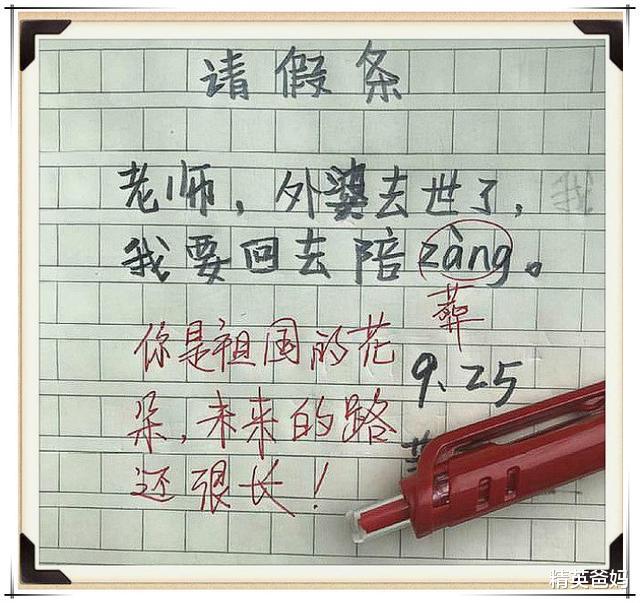 请假条
老师，外婆去世了，
我要回去陪zàng。
葬
9.25
你是祖国的花
朵，未来的路
还很长！
精英爸妈